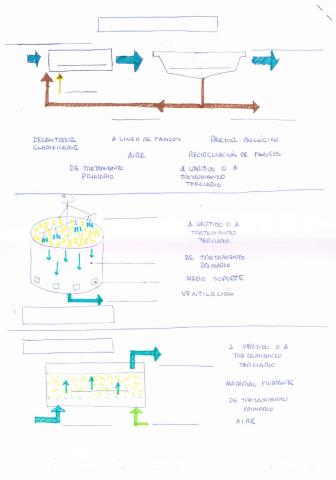 DECANTADOR
CLARIFICADOR
A LINEA DE FANGOS
REACTOR BIOLÓGICO
AIRE
RECIRCULACIÓN DE FANGOS
DE TRATAMIENTO
PRIMARIO
A VERTIDO O A
TRATAMIENTO
TERCIARIO
A VERTIDO O A
TRATAMIENTO
TERCIARIO
DE TRATAMIENTO
PRIMARIO
MEDIO SOPORTE
VENTILACIÓN
A VERTIDO O A
TRATAMIENTO
TERCIARIO
MATERIAL FILTRANTE
DE TRATAMIENTO
PRIMARIO
AIRE